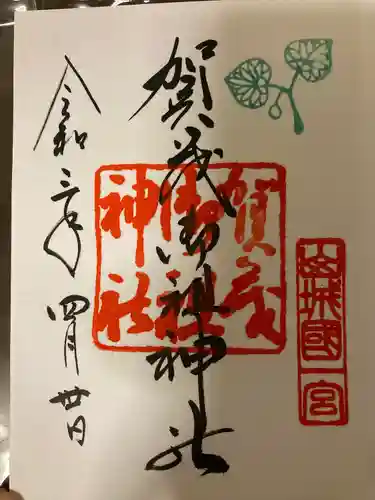 賀茂御祖神社
賀茂
御祖
神社
山城國一宮
令和三年
四月廿日